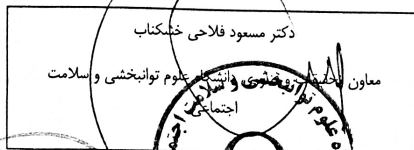 دکتر مسعود فلاحی خشکناب
معاون تحقیقات و فناوری دانشگاه علوم توانبخشی و سلامت
اجتماعی
علوم توانبخشی و سلامت اجتما